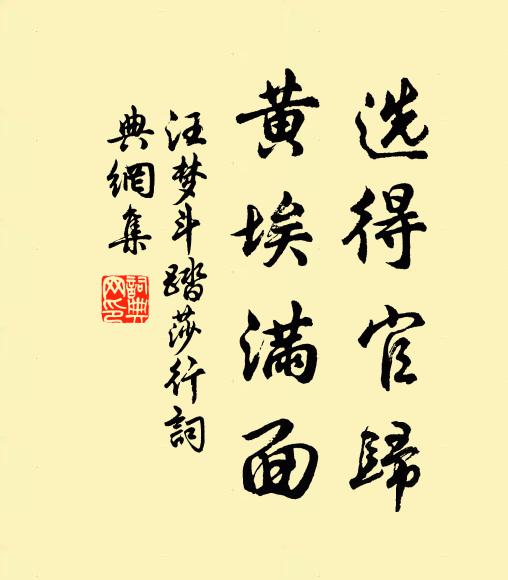 选得官歸
黄埃满面
汪梦斗踏莎行詞
典網集
詞典網印